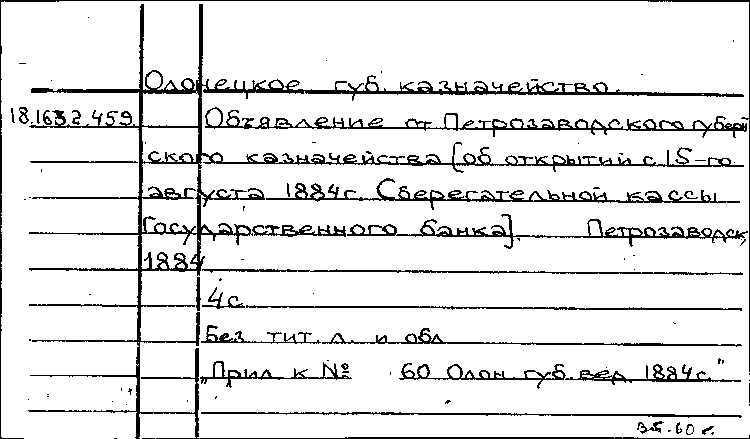 Олонецкое губ. казначейство.
18.163.2.459 Объявление от Петрозаводского губерн
ского казначейства [об открытии с 15-го
августа 1884г. Сберегательной кассы
Государственного банка]. Петрозаводск,
1884
4с
Без тит. л. и обл
"Прил. к № 60 Олон. губ. вед. 1884г."